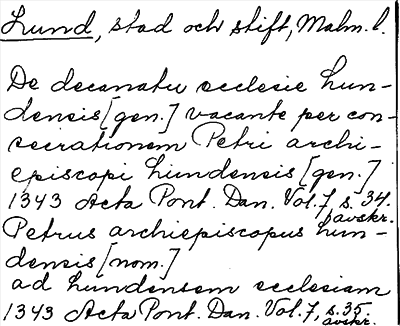 Lund, stad och stift, Malm. l.
De decanatu ecclesie lun-
densis [gen.] vacante per con-
secrationem Petri archi-
episcopi lundensis [gen.]
1343 Acta Pont. Dan. Vol. 7, s. 34.
avskr.
Petrus archiepiscopus lun-
densis [nom.]
ad lundensem ecclesiam
1343 Acta Pont. Dan. Vol. 7, s. 35.
avskr.